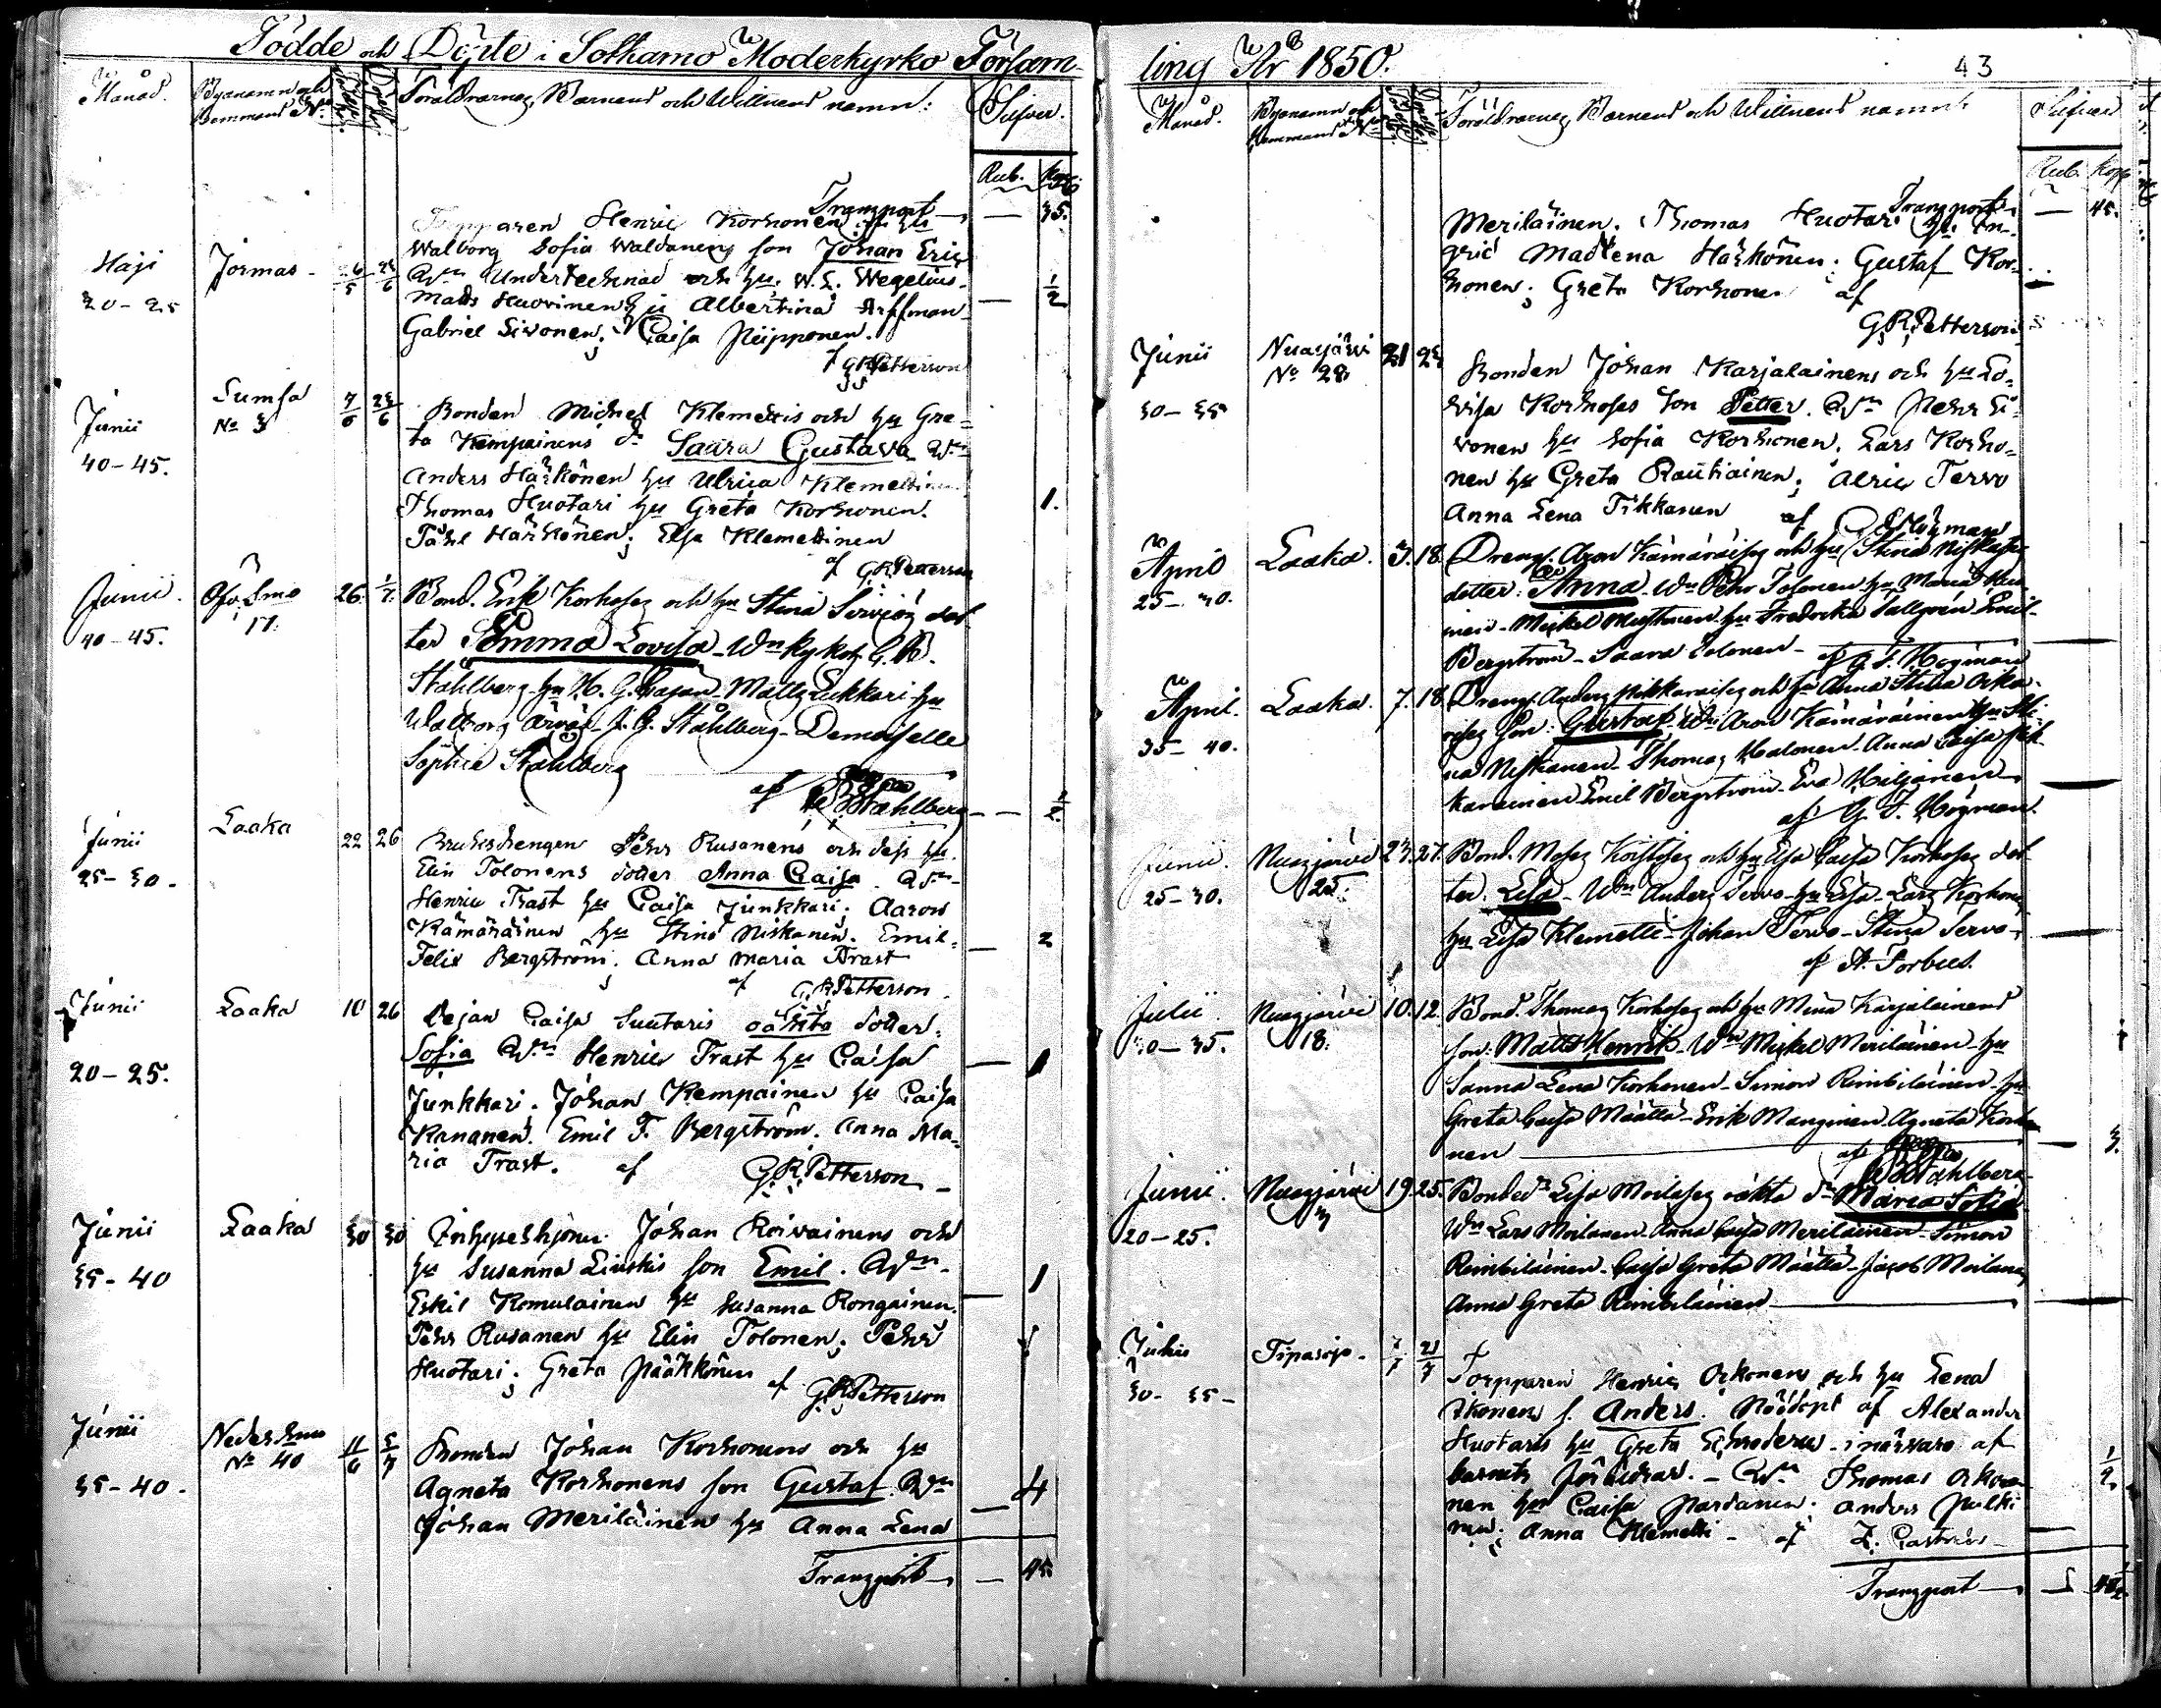 Födde och Döpte i Sotkamo Moderkyrko Församling År 1850.
43
Månad.
Byanamn och
Hemmans No
Födde.
Döpte.
Föräldrarnas, Barnens och Wittnens namn:
Silfver.
Rub. Kop.
Transport — 35.
Maji
20-25
Jormas
26/5
Torpparen Henric Korhonen och hu
Walborg Sofia Waldanens son Johan Eric
Wn Undertecknad och hu. W. L. Wegelius.
Matts Huovinen hu Albertina Arffman
— 1/2
Gabriel Sivonen; Caisa Piipponen.
af GRPetterson
Junii
40-45.
Sumsa
No 3
7/6 23/6
Bonden Michel Klemettis och hu Gre-
ta Kempainens dr Saara Gustava Wn
Anders Härkönen hu Ulrica Klemettinen
Thomas Huotari hu Greta Korhonen.
1.
Påhl Härkönen; Elsa Klemettinen
af GRPetterson
Junii.
40-45.
Öfv. Smo
17.
26. 1/7.
Bond. Erik Korhoses och hu Stina Sirviös dot
ter Emma Lovisa - Wn Kyrkoh. G. B.
Ståhlberg - hu H. G. Cajan - Matts Lukkari - hu
Walborg Arvas - J. G. Ståhlberg - Demoiselle
Sophie Ståhlberg
af Ståhlberg — 1/2
Junii
25-30.
Laaka
22 26
Bruksdrengen Pehr Rusanens och dess hu
Elin Tolonens dotter Anna Caisa. Wn
Henric Trast hu Caisa Junkkari; Aaron
Kämäräinen hu Stina Niskanen. Emil
— 2
Felix Bergström; Anna Maria Trast
af GRPetterson.
Junii
20-25.
Laaka
10 26
Pejan Caisa Suutaris oäkta dotter.
Sofia Wn Henric Trast hu Caisa
— 1
Junkkari. Johan Kempainen hu Caisa
Kananen. Emil F. Bergström. Anna Ma-
ria Trast. af GRPetterson
Junii
35-40
Laaka
30 30
Inhyseshjonen Johan Koivainens och
hu Susanna Linskis son Emil. Wn
— 1
Eskil Romulainen hu Susanna Rongainen.
Pehr Rusanen hu Elin Tolonen; Pehr
Huotari; Greta Pääkkönen
af GRPetterson
Junii
35-40.
Neder Smo
No 40
11/6 5/7
Bonden Johan Korhonens och hu
Agneta Korhonens son Gustaf. Wn
— 4
Johan Meriläinen hu Anna Lena
Transport — 45.
Månad.
Byanamn och
Hemmans No
Föräldrarnas, Barnens och Wittnens namn
Silfver
Rub. Kop.
Transport — 45.
Meriläinen. Thomas Huotari hu In-
grid Madlena Härkönen; Gustaf Kor-
honen; Greta Korhonen af
GRPetterson
Junii
30-35
Nuasjärvi
No 28
21 23
Bonden Johan Karjalainens och hu Lo-
visa Korhoses son Petter. Wn Pehr Si-
vonen hu Sofia Korhonen. Lars Korho-
nen hu Greta Rautiainen; Alric Tervo
Anna Lena Tikkanen af Högman
April
25-30.
Laaka.
3. 18.
Dreng. Aron Kämäräises och hu Stina Niskases
dotter: Anna. Wn Pehr Tolonen hu Maria
Mickel Mustonen - hu Fredrika Sallgrén Emil
Bergström - Saara Tolonen - af G. F. Högman
April.
35-40.
Laaka.
7. 18.
Dreng. Anders Pikkaraises och hu Anna Stina
son: Gustaf - Wn Aron Kämäräinen hu Sti-
na Niskanen - Thomas Halonen - Anna Caisa Pik-
karainen Emil Bergström - Eva Hiljanen
af G. F. Högman.
Junii
25-30.
Nuasjärvi
25.
23. 27.
Bond. Moses Koistises och hu Elsa Caisa Korhoses dot-
ter. Lisa - Wn Anders Servo - hu Lisa - Lars Korhonen
hu Lisa Klemetti - Johan Tervo - Stina Servo
af A. Forbus.
Julii.
30-35.
Nuasjärvi
18.
10. 12.
Bond. Thomas Korhoses och hu Mina Karjalainens
son. Matts Henrik - Wn Mickel Meriläinen - hu
Sanna Lena Korhonen - Simon Rimbiläinen - hu
Greta Caisa Määttä - Erik Manginen - Agneta Korho-
nen — 3.
af Ståhlberg
Junii.
20-25.
Nuasjärvi
3
19. 25.
Bonded. Lisa Moilases oäkta dr Maria Sofia
Wn Lars Moilanen - Anna Caisa Meriläinen - Simon
Rimbiläinen - Caisa Greta Määttä - Jacob Moilanen
Anna Greta Rimbiläinen
Julii
30-35-
Tipasoja.
7/7 21/7
Torpparen Henric Okkonens och hu Lena
Ikonens s. Anders. Nöddöpt af Alexander
Huotaris hu Greta Schroderus - i närvaro af
barnets föräldrar. - Wn Thomas Okko-
1/2
nen hu Caisa Pardanen; Anders Pulki
nen; Anna Klemetti - af Z. Castrén
Transport —